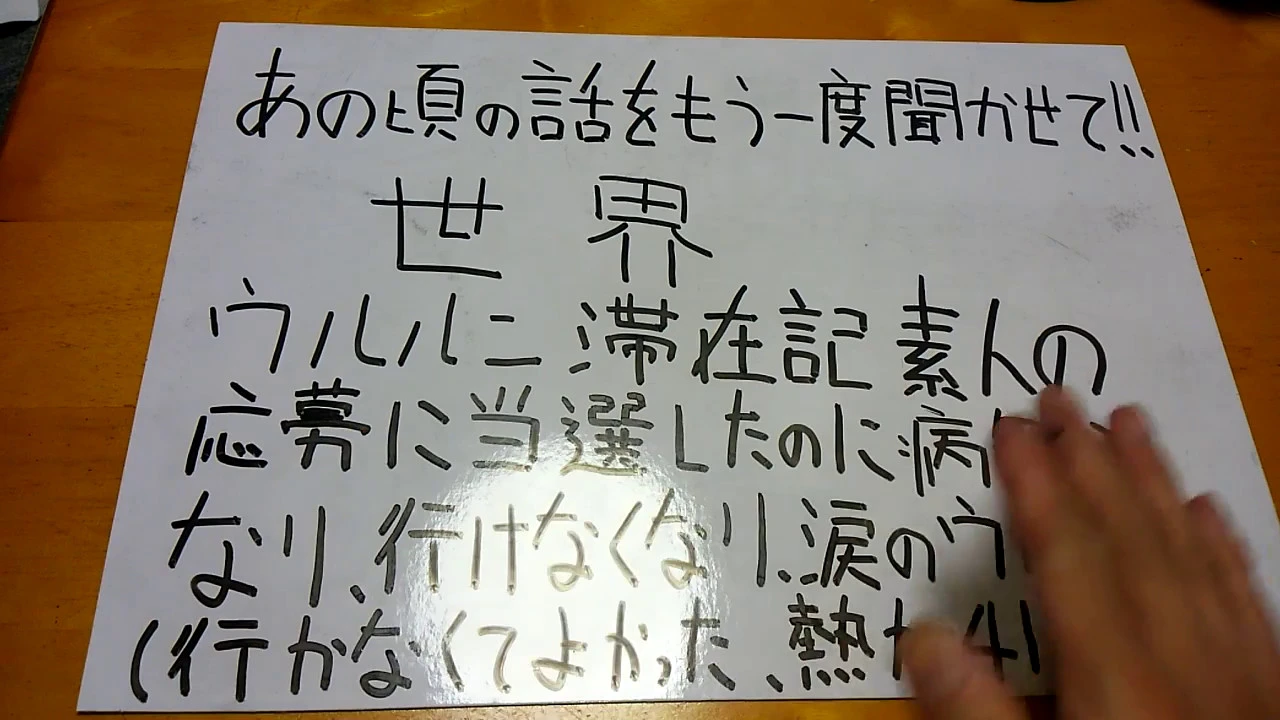 あの頃の話をもう一度聞かせて!!
世界
ウルルン滞在記素人の
応募に当選したのに病
なり、行けなくなり、涙のウ
(行かなくてよかった、熱が41